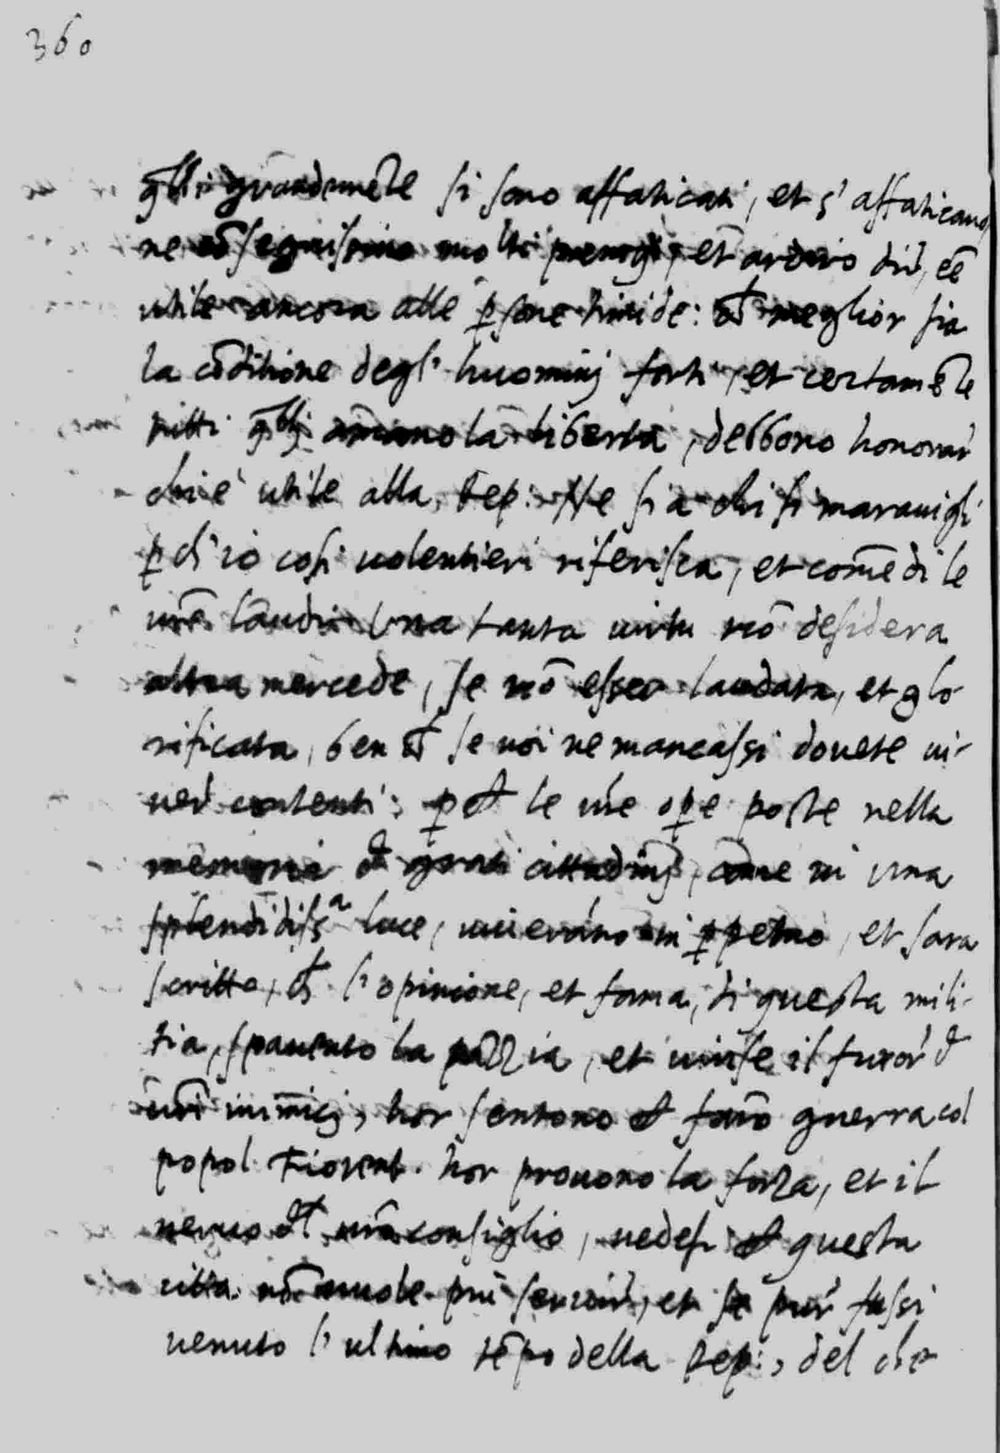 360
qlli grandemẽte si sono affaticati, et s'affaticano,
ne cõseguiscino molti premij, et ardiro dir, eẽ
utile ancora alle p̱sone timide: meglior sia
la cõditione degl'huominj forti, et certamẽte
tutti qllj amano la libertà, debbono honorar
chi è utile alla Rep: Ne sia chi si maravigli
p̱ch'io cosi volentieri riferisca, et comẽdi le
vrẽ laudi. Una tanta virtu nõ desidera
altra mercede, se nõ esser laudata, et glo-
rificata, ben se voi ne mancassi dovete vi-
ver contenti: p̱che le vrẽ op̱e poste nella
memoria grati cittadinj, come in una
splendidissᵃ luce, viverãno in p̱petuo, et sara
scritto, l'opinione, et fama, di questa mili-
tia, spavento la pazzia, et vinse il furor
vrĩ inimicj, hor sentono che fãno guerra col
popol Fiorent. hor provono la forza, et il
nervo vrõ consiglio, vedesi che questa
citta nõ vuole più servire, et se pur fussi
venuto l'ultimo tẽpo della Rep:, del che